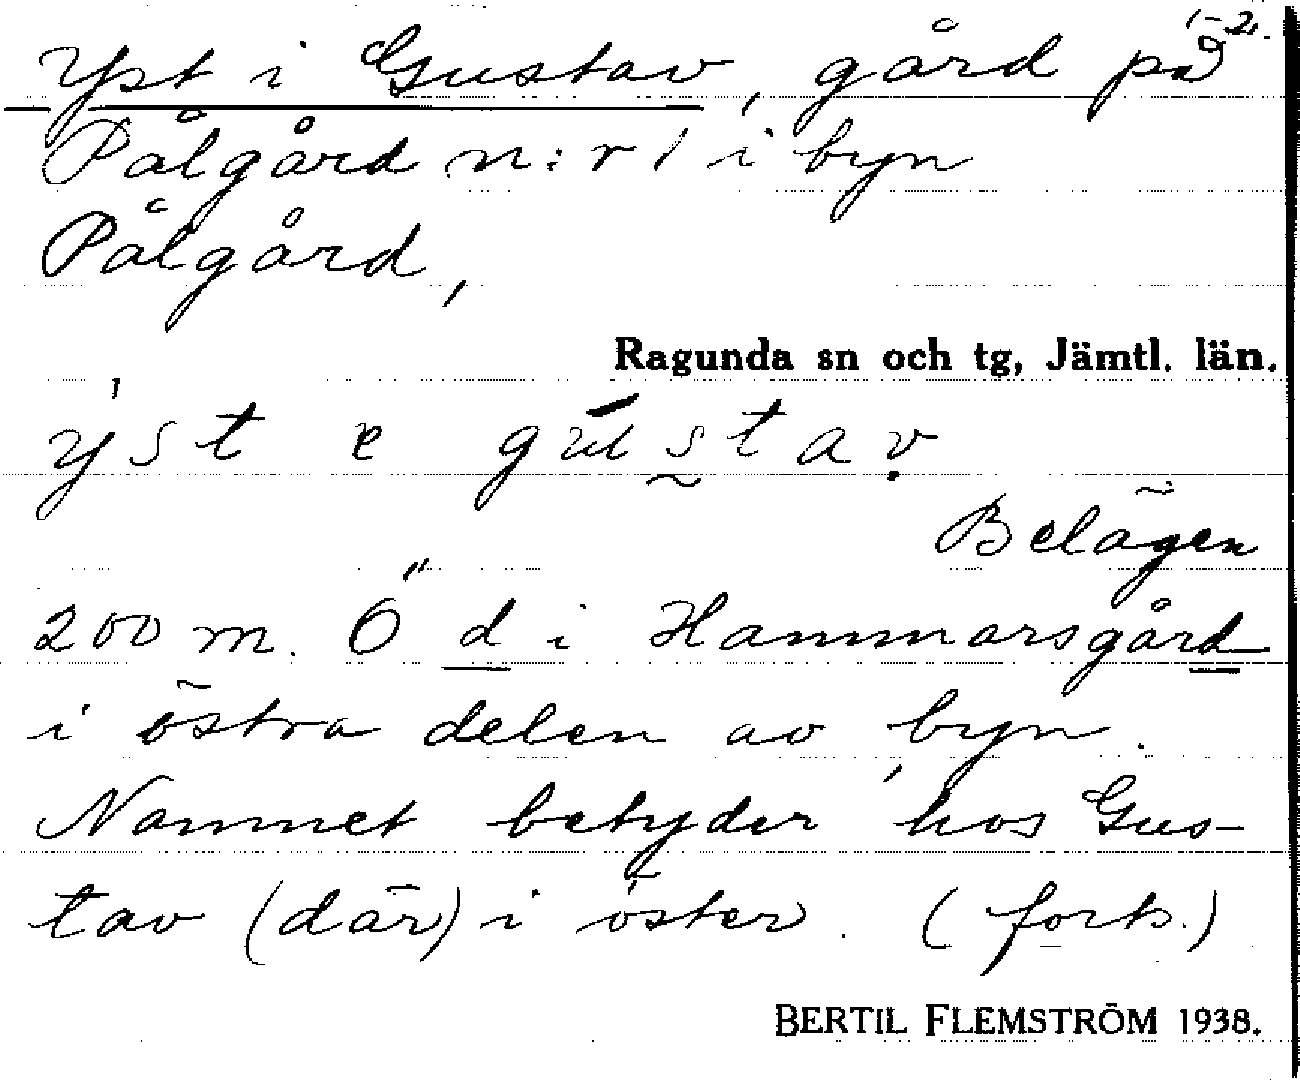 1-2.
Yst i Gustav, gård på
Pålgård n:r 1 i byn
Pålgård,
Ragunda sn och tg, Jämtl. län.
ýst e gústav
Belägen
200 m. Ö d i Hammarsgård
i östra delen av byn.
Namnet betyder 'hos Gus-
tav (där) i öster. (forts.)
BERTIL FLEMSTRÖM 1938.